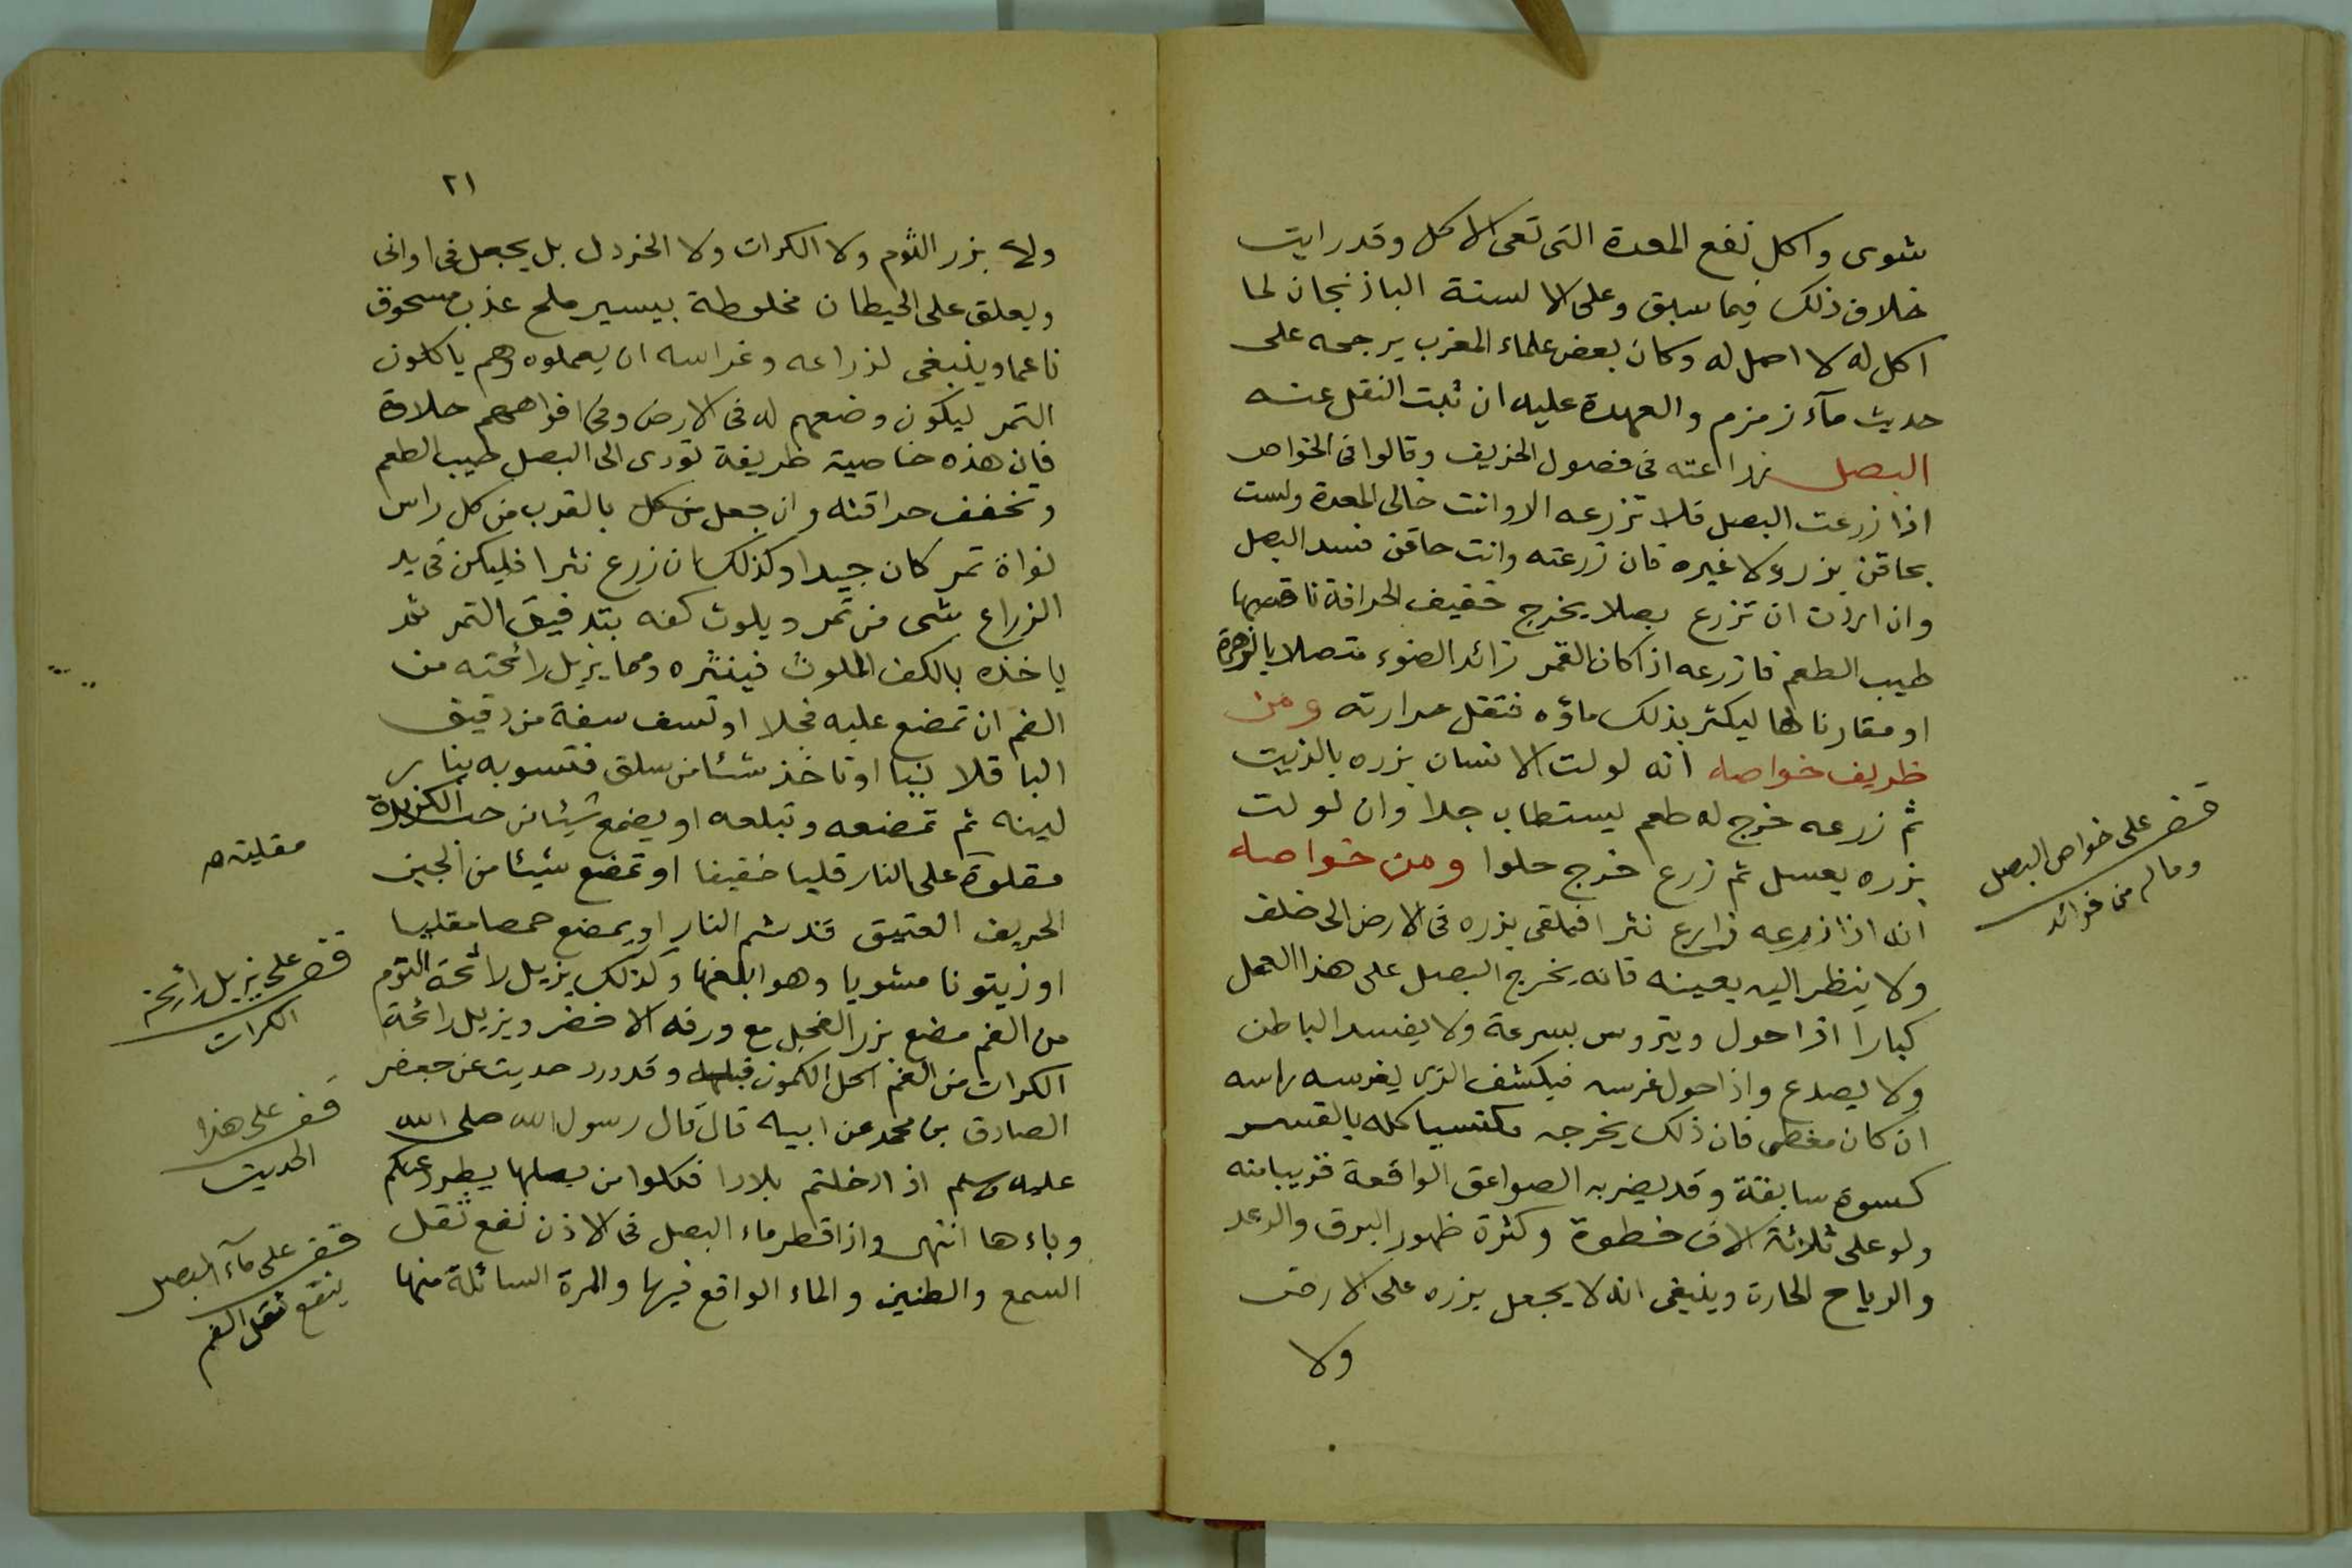 شوى واكل نفع المعدة التى تقى الاكل وقد رايت
خلاف ذلك فيما سبق وعلى الالسنة الباذنجان لما
اكل له لا اصل له وكان بعض علماء المغرب يرجحه على
حديث مآء زمزم والعهدة عليه ان ثبت النقل عنه
البصل زراعته فى فصول الخريف وقالوا فى الخواص
اذا زرعت البصل فلا تزرعه الا وانت خالى المعدة ولست
بحاقن بزر ولا غيره فان زرعته وانت حاقن فسد البصل
وان اردت ان تزرع بصلا يخرج خفيف الحرافة ناقصها
طيب الطعم فازرعه اذا كان القمر زائد الضوء متصلا بالزهرة
او مقارنا لها ليكثر بذلك ماؤه فتقل حرارته ومن
ظريف خواصه انه لو لت الانسان بزره بالزيت
ثم زرعه خرج له طعم يستطاب جدا وان لو لت
بزره بعسل ثم زرع خرج حلوا ومن خواصه
انه اذا زرعه زارع نثرا فيلقى بزره فى الارض الى خلف
ولا ينظر اليه بعينه فانه يخرج البصل على هذا العمل
كبارا اذا حول ويتروس بسرعة ولا يفسد الباطن
ولا يصدع واذا حول غرسه فيكشف الذى يغرسه راسه
ان كان مغطى فان ذلك يخرجه مكتسيا كله بالقشر
كسوة سابغة وقد يضر به الصواعق الواقعة قريبا منه
ولو على ثلاثة الاف خطوة وكثرة ظهور البرق والرعد
والرياح الحارة وينبغى انه لا يجعل بزره على الارض
ولا
قف على خواص البصل
وما له من فوائد
٢١
ولا بزر الثوم ولا الكرات ولا الخردل بل يجعل فى اوانى
ويعلق على الحيطان مخلوطة بيسير ملح عذب مسحوق
ناعما وينبغى لزراعه وغراسه ان يعملوه وهم ياكلون
التمر ليكون وضعهم له فى الارض وفى افواههم حلاوة
فان هذه خاصية ظريفة تؤدى الى البصل طيب الطعم
وتخفف حراقته وان جعل من كل بالقرب من كل راس
نواة تمر كان جيدا وكذلك ان زرع نثرا فليكن فى يد
الزراع شى من تمر ويلوث كفه بتدفيق التمر ثم
ياخذه بالكف الملوث فينثره ومما يزيل رائحته من
الفم ان تمضغ عليه فجلا او تسف سفة من دقيق
الباقلا نيا او تاخذ شئا من سلق فتسويه بنار
لينه ثم تمضغه وتبلعه او يضمغ شيئا من حب الكزبرة
مقلوة على النار قليا خفيفا او تمضغ شيئا من الجبن
الحريف العتيق قد شم النار او يمضغ حمصا مقليا
او زيتونا مشويا وهو ابلغها وكذلك يزيل رائحة الثوم
من الفم مضغ بزر الفجل مع ورقه الاخضر ويزيل رائحة
الكرات من الفم اكل الكمون قبلها وقد ورد حديث عن جعفر
الصادق بن محمد عن ابيه قال قال رسول الله صلى الله
عليه وسلم اذا دخلتم بلادا فكلوا من بصلها يطرد عنكم
وباءها انتهى واذا قطر ماء البصل فى الاذن نفع ثقل
السمع والطنين والماء الواقع فيها والمرة السائلة منها
مقليه
قف على يزيل رائحة
الكرات
قف على هذا
الحديث
قف على مآء البصل
ينفع ثقل الفم